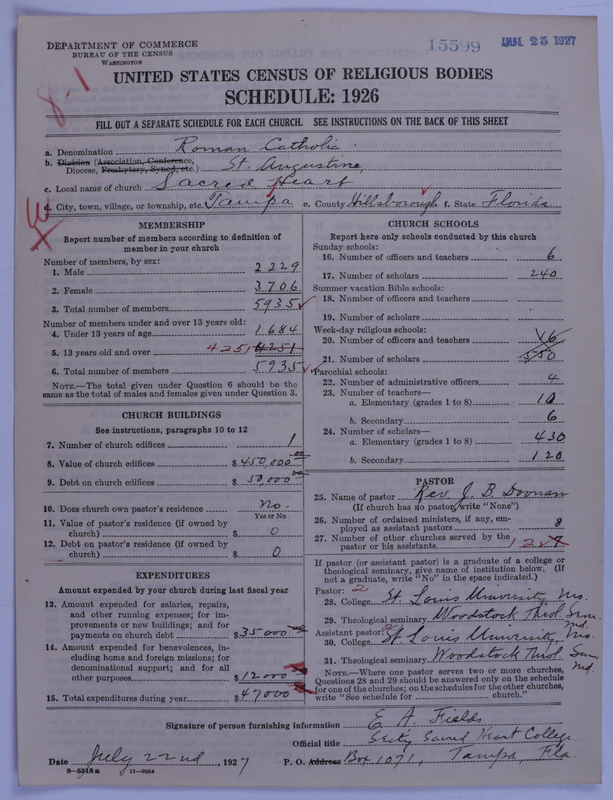 DEPARTMENT OF COMMERCE
BUREAU OF THE CENSUS
WASHINGTON
15599
JUL 25 1927
8-1
UNITED STATES CENSUS OF RELIGIOUS BODIES
SCHEDULE: 1926
FILL OUT A SEPARATE SCHEDULE FOR EACH CHURCH. SEE INSTRUCTIONS ON THE BACK OF THIS SHEET
a. Denomination Roman Catholic
b. Division (Association, Conference,
Diocese, Presbytery, Synod, etc.) St. Augustine,
c. Local name of church Sacred Heart
d. City, town, village, or township, etc. Tampa e. County Hillsborough f. State Florida
MEMBERSHIP
Report number of members according to definition of
member in your church
Number of members, by sex:
1. Male 2229
2. Female 3706
3. Total number of members 5935
Number of members under and over 13 years old:
4. Under 13 years of age 1684
5. 13 years old and over 4251 4251
6. Total number of members 5935
NOTE.—The total given under Question 6 should be the
same as the total of males and females given under Question 3.
CHURCH BUILDINGS
See instructions, paragraphs 10 to 12
7. Number of church edifices 1
8. Value of church edifices $450,000 00
9. Debt on church edifices $ 50,000 00
10. Does church own pastor's residence No.
Yes or No
11. Value of pastor's residence (if owned by
church) $ 0
12. Debt on pastor's residence (if owned by
church) $ 0
EXPENDITURES
Amount expended by your church during last fiscal year
13. Amount expended for salaries, repairs,
and other running expenses; for im-
provements or new buildings; and for
payments on church debt $35000
14. Amount expended for benevolences, in-
cluding home and foreign missions; for
denominational support; and for all
other purposes $12000
15. Total expenditures during year $47000
CHURCH SCHOOLS
Report here only schools conducted by this church
Sunday schools:
16. Number of officers and teachers 6
17. Number of scholars 240
Summer vacation Bible schools:
18. Number of officers and teachers
19. Number of scholars
Week-day religious schools:
20. Number of officers and teachers 16
21. Number of scholars 550
Parochial schools:
22. Number of administrative officers 4
23. Number of teachers—
a. Elementary (grades 1 to 8) 10
b. Secondary 6
24. Number of scholars—
a. Elementary (grades 1 to 8) 430
b. Secondary 120
PASTOR
25. Name of pastor Rev. J. B. Doonan
(If church has no pastor, write "None")
26. Number of ordained ministers, if any, em-
ployed as assistant pastors 8
27. Number of other churches served by the
pastor or his assistants 12
If pastor (or assistant pastor) is a graduate of a college or
theological seminary, give name of institution below. (If
not a graduate, write "No" in the space indicated.)
Pastor: 2
28. College St. Louis University, Mo.
29. Theological seminary Woodstock Theol. Sem. Md.
Assistant pastor:
30. College St Louis University, Mo.
31. Theological seminary Woodstock Theol. Sem Md.
NOTE.—Where one pastor serves two or more churches,
Questions 28 and 29 should be answered only on the schedule
for one of the churches; on the schedules for the other churches,
write "See schedule for church."
Signature of person furnishing information E. A. Fields
Official title Secty Sacred Heart College
Date July 22nd, 1927 P. O. Address Box 1071, Tampa, Fla.
8—5518 a 11—9054